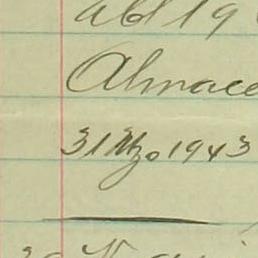 abl 19
Almace
31 Mzo 1943